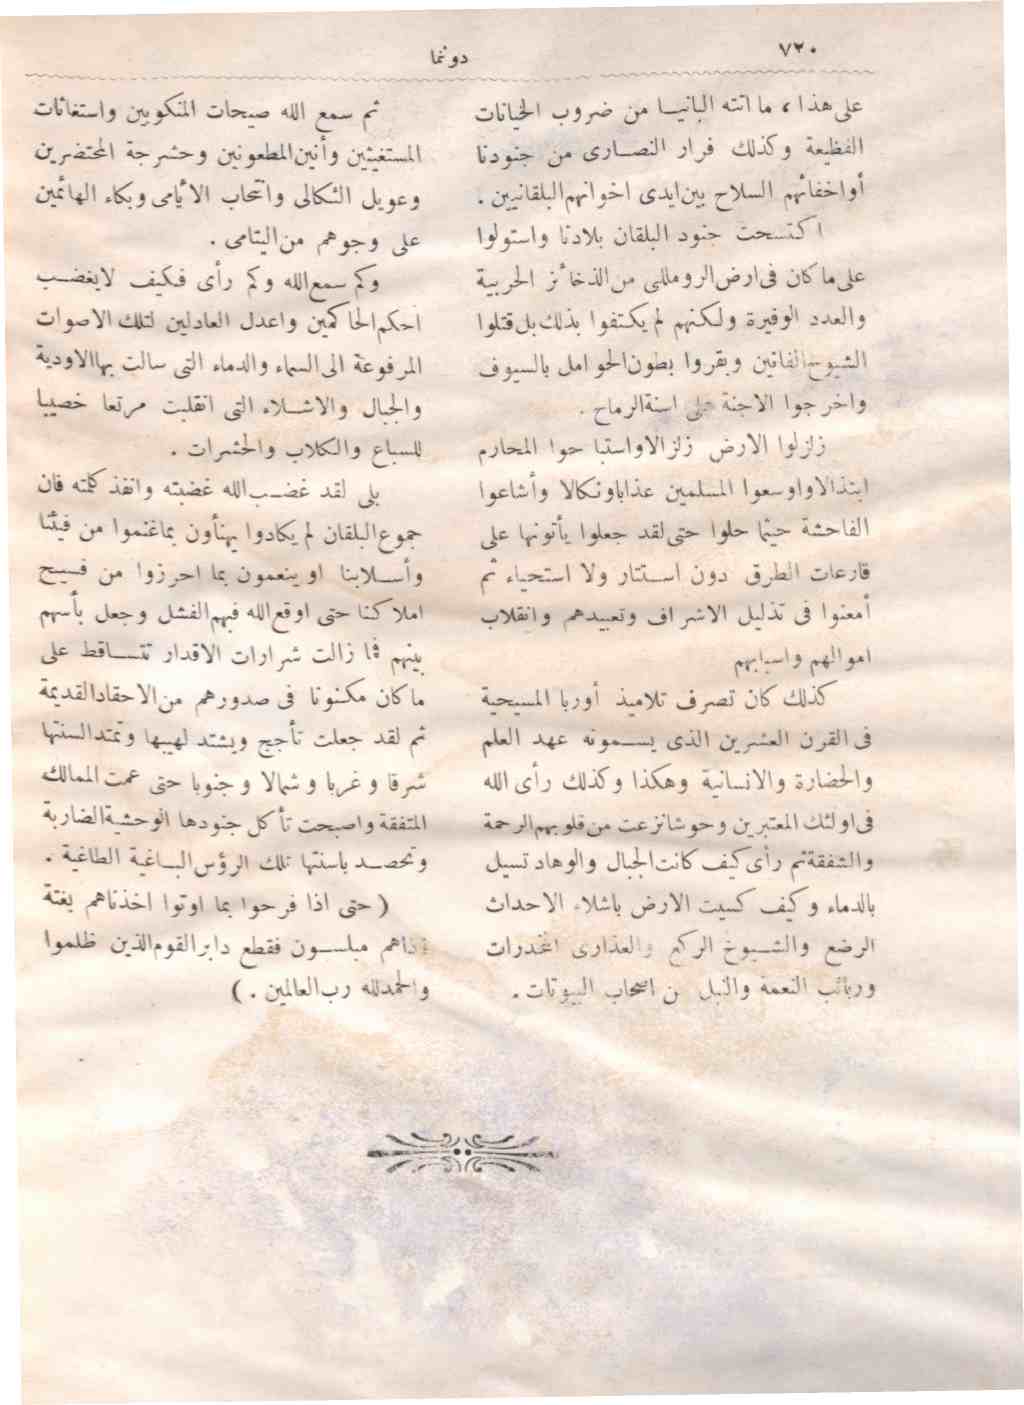 ٧٢٠
دونما
على هذا ، ما اتته البانيـا من ضروب الخيانات
الفظيعة وكذلك فرار النصـارى من جنودنا
أواخفائهم السلاح بين ايدى اخوانهم البلقانيين .
اكتسحت جنود البلقان بلادنا واستولوا
على ماكان فى ارض الروملى من الذخائز الحربية
والعدد الوفيرة ولكنهم لم يكتفوا بذلك بل قتلوا
الشيوخ الفانين وبقروا بطون الحوامل بالسيوف
واخرجوا الاجنة على اسنة الرماح .
زلزلوا الارض زلزالا واستباحوا المحارم
ابتذالا واوسعوا المسلمين عذابا ونكالا وأشاعوا
الفاحشة حيثما حلوا حتى لقد جعلوا يأتونها على
قارعات الطرق دون اسـتتار ولا استحياء ثم
أمعنوا فى تذليل الاشراف وتعبيدهم وانقلاب
اموالهم واسبابهم
كذلك كان تصرف تلاميذ أوربا المسيحية
فى القرن العشرين الذى يسـمونه عهد العلم
والحضارة والانسانية وهكذا وكذلك رأى الله
فى اولئك المعتبرين وحوشا نزعت من قلوبهم الرحمة
والشفقة ثم رأى كيف كانت الجبال والوهاد تسيل
بالدماء وكيف كسيت الارض باشلاء الاحداث
الرضع والشـيوخ الركع والعذارى المخدرات
وربائب النعمة والنبل من اصحاب البيوتات .
ثم سمع الله صيحات المنكوبين واستغاثات
المستغيثين وأنين المطعونين وحشرجة المحتضرين
وعويل الثكالى وانتحاب الايامى وبكاء الهائمين
على وجوههم من اليتامى .
وكم سمع الله وكم رأى فكيف لايغضـب
احكم الحاكمين واعدل العادلين لتلك الاصوات
المرفوعة الى السماء والدماء التى سالت بها الاودية
والجبال والاشـلاء التى انقلبت مرتعا خصيبا
للسباع والكلاب والحشرات .
بلى لقد غضـب الله غضبته وانفذ كلمته فان
جموع البلقان لم يكادوا يهنأون بماغنموا من فيئنا
وأسـلابنا او ينعمون بما احرزوا من فسيح
املاكنا حتى اوقع الله فيهم الفشل وجعل بأسهم
بينهم فما زالت شرارات الاقدار تتـساقط على
ماكان مكنونا فى صدورهم من الاحقاد القديمة
ثم لقد جعلت تأجج ويشتد لهيبها وتمتد السنتها
شرقا وغربا وشمالا وجنوبا حتى عمت الممالك
المتفقة واصبحت تأكل جنودها الوحشية الضاربة
وتحصـد باسنتها تلك الرؤس البـاغية الطاغية .
( حتى اذا فرحوا بما اوتوا اخذناهم بغتة
فاذاهم مبلسـون فقطع دابر القوم الذين ظلموا
والحمدلله رب العالمين . )